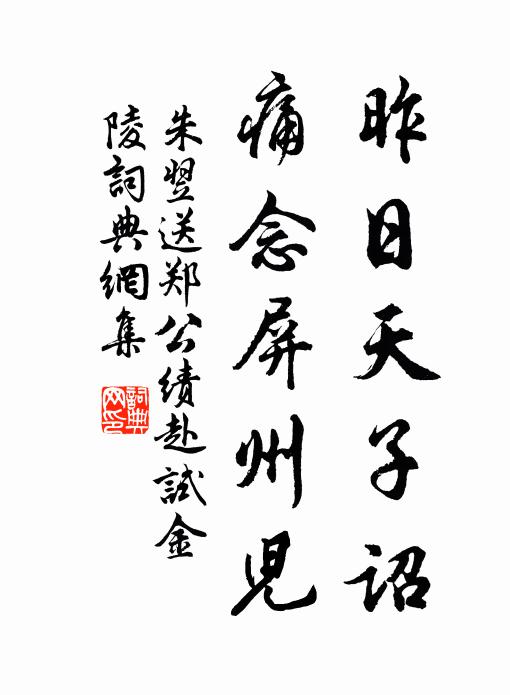 昨日天子詔
痛念屏州兒
朱翌送郑公绩赴試金
陵詞典網集
詞典網印